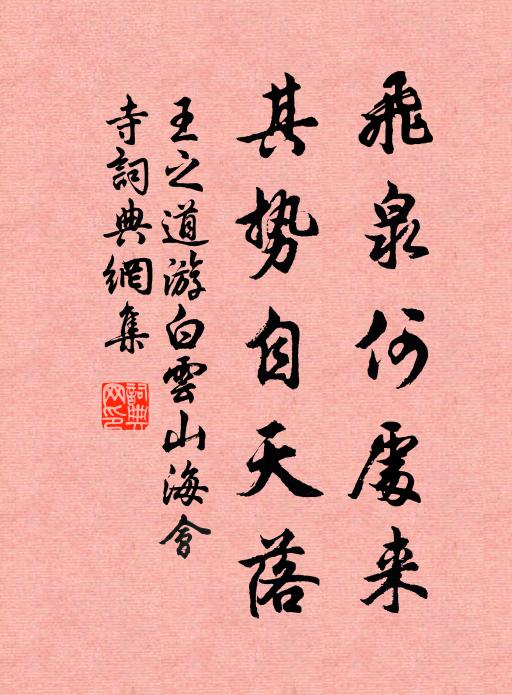 飛泉何處来
其势自天落
王之道游白雲山海會
寺詞典網集
詞典网印